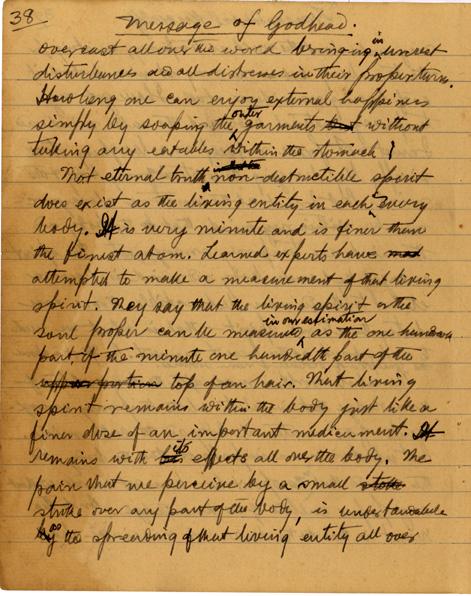 38
Message of Godhead.
overcast all over the world bringing in unrest
disturbances and all distresses in their proper turn.
How long one can enjoy external happiness
simply by soaping the outer garments without
taking any eatables within the stomach!
That eternal truth non-destructible spirit
does exist as the living entity in each every
body. It is very minute and is finer than
the finest atom. Learned experts have
attempted to make a measurement of that living
spirit. They say that the living spirit or the
soul proper can be measured in our estimation as the one hundred
part of the minute one hundredth part of the
upper portion top of an hair. That living
spirit remains within the body just like a
finer dose of an important medicament. It
remains with its effects all over the body. The
pain that we perceive by a small
stroke over any part of the body, is understandable
as the spreading of that living entity all over